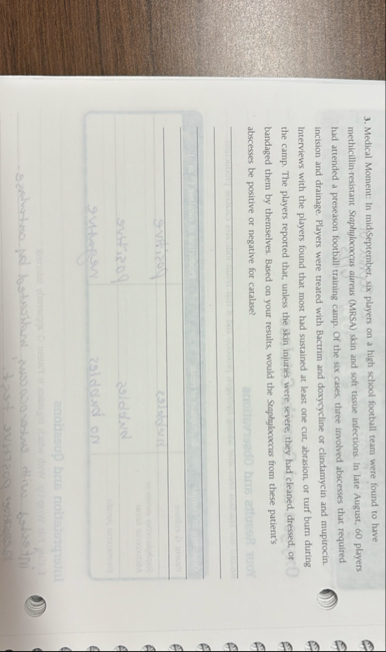 3. Medical Moment: In mid-September, six players on a high school football team were found to have
methicillin-resistant Staphylococcus aureus (MRSA) skin and soft tissue infections. In late August, 60 players
had attended a preseason football training camp. Of the six cases, three involved abscesses that required
incision and drainage. Players were treated with Bactrim and doxycycline or clindamycin and mupirocin.
Interviews with the players found that most had sustained at least one cut, abrasion, or turf burn during
the camp. The players reported that, unless the skin injuries were severe, they had cleaned, dressed, or
bandaged them by themselves. Based on your results, would the Staphylococcus from these patient's
abscesses be positive or negative for catalase?
Your Results and Observations
positive bubbles
positive bubbles
negative no bubbles